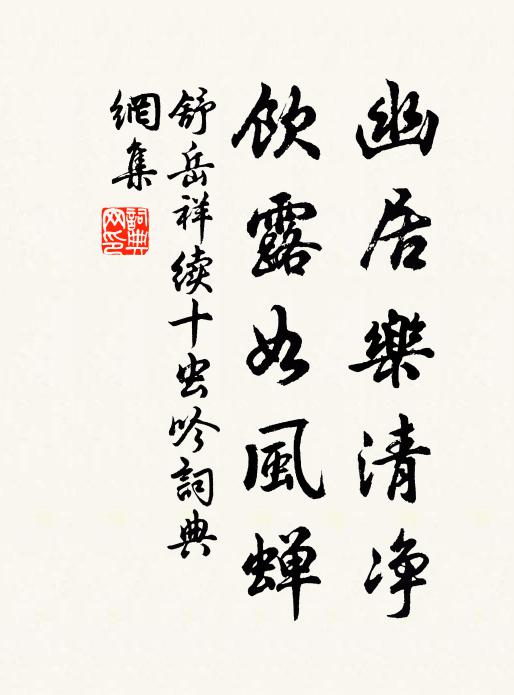 幽居樂清净
飲露如風蝉
舒岳祥续十虫吟詞典
網集
詞典网印